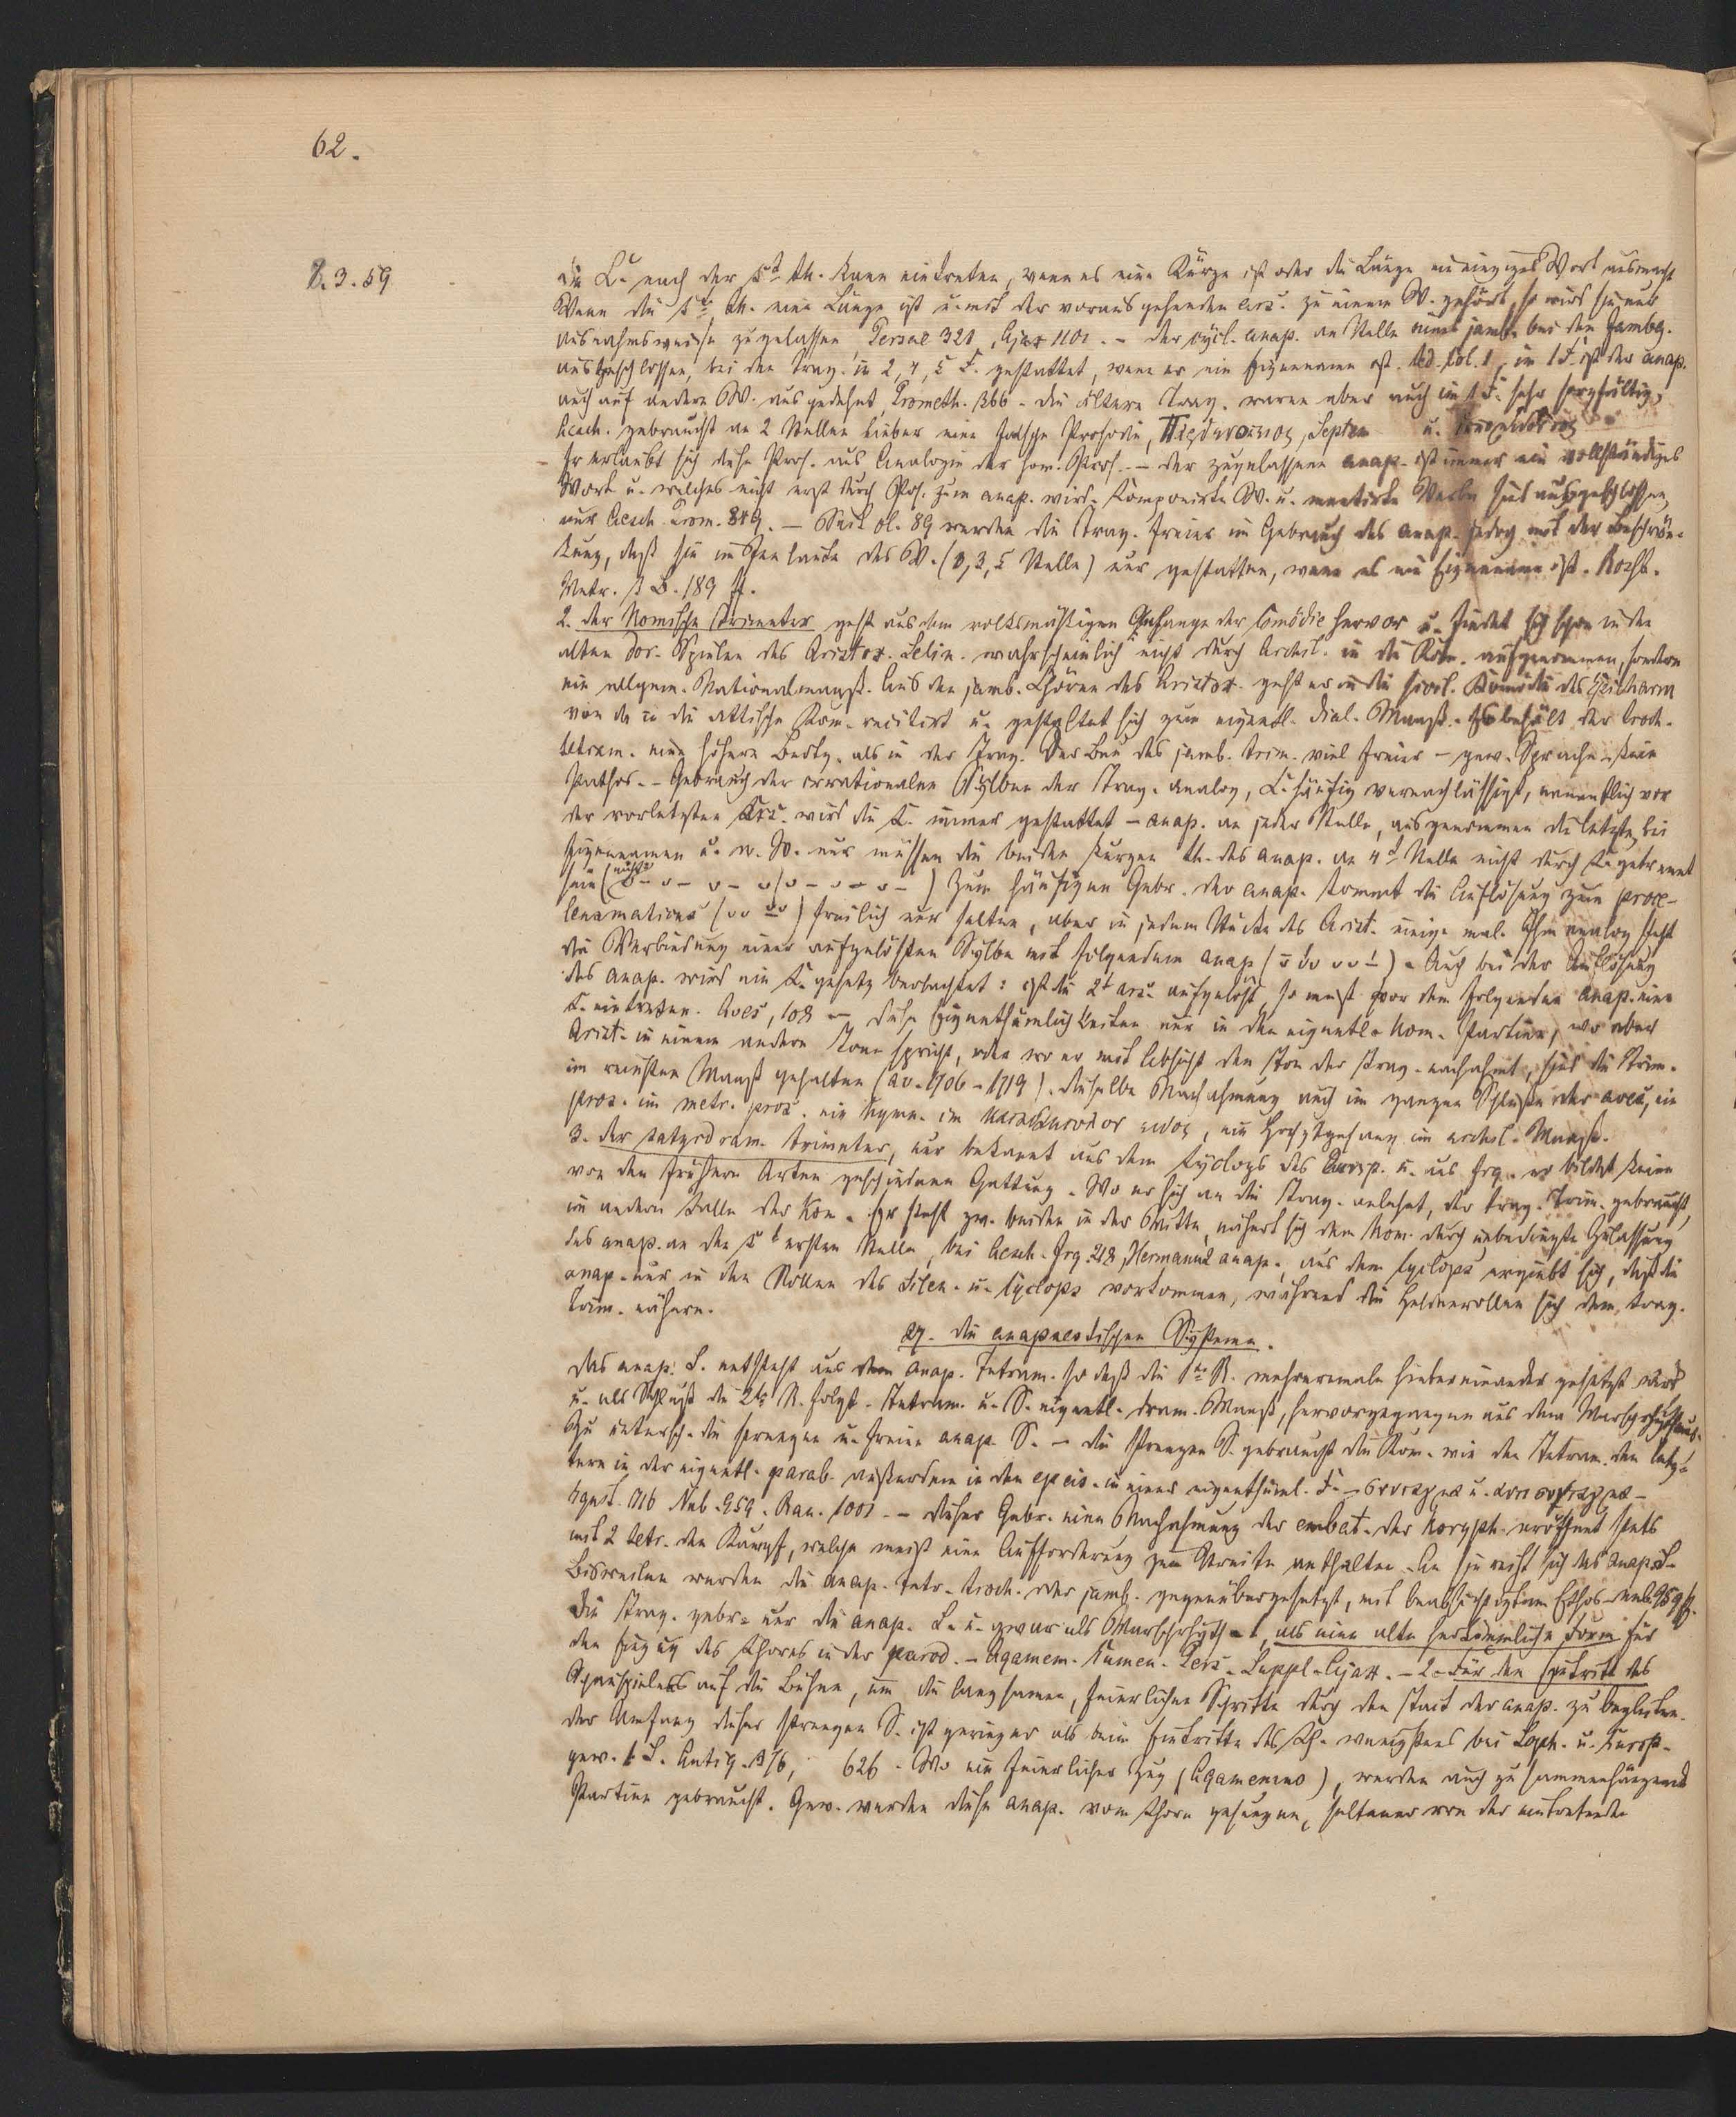 62.
8.3.59
die C. nach der 5t th. kann eintreten, wenn es eine Kürze ist oder die Länge ein einziges Wort ausmacht
Wenn die 5te th. eine Länge ist u. mit der vorausgehenden ars. zu einem W. gehört, so wird sie nur
ausnahmsweise zugelassen, Persae 321, Ajax 1101. – der cycl. anap. an Stelle eines jamb. bei den Jambg.
ausgeschlossen, bei den Trag. in 2, 4, 5 F. gestattet, wenn er ein Eigenname ist. Oed. Col. 1, im 1 F. ist der anap.
auch auf andere W. ausgedehnt, Prometh. 366 – die ältern Trag. waren aber auch im 1 F. sehr sorgfältig,
Aesch. gebraucht an 2 Stellen lieber eine falsche Prosodie, Παρθενοπαιος, Septem u.
Er erlaubt sich diese Pros. aus Analogie der hom. Pros. – der zugelassene anap. ist immer ein vollständiges
Wort u. welches nicht erst durch Pos. zum anap. wird. Componirte W. u. Verba sind ausgeschlossen,
nur Aesch. Prom. 819. – Seit Ol. 89 werden die Trag. freier im Gebrauch des anap. jedoch mit der Beschrän-
kung, daß sie im Inlaute des W. (2, 3, 5 Stelle) nur gestatten, wenn es ein Eigenname ist. Rossb.
Metr. 3 B. 189 ff.
2. der komische Trimeter geht aus dem volksmäßigen Gesange der Comödie hervor u. findet sich schon in den
alten dor. Spielen des Aristox. Selin. wahrscheinlich nicht durch Archil. in die Kom. aufgenommen, sondern
ein allgem. Nationalmaaß. Aus den jamb. Chören des Aristox. geht er in die sicil. Komödie des Epicharm
von da in die attische Kom. recitirt u. gestaltet sich zum eigentl. dial. Maaß. – Es behält der troch.
tetram. eine höhere Bedtg. als in der Trag. Der Bau des jamb. trim. viel freier – gew. Sprache – kein
Pathos. – Gebrauch der irrationalen Sylben der Trag. analog, C. häufig vernachlässigt, namentlich vor
der vorletzten Ars. wird die C. immer gestattet – anap. an jeder Stelle, ausgenommen die letzte, bei
Eigennamen u. n. W. nur müssen die beiden kurzen th. des anap. an 4t Stelle nicht durch C. getrennt
sein (nicht ᴗ – ᴗ – ᴗ – ᴗ | ᴗ – ᴗ – ᴗ –) Zum häufigen Gebr. der anap. kommt die Auflösung zum proce-
leusmaticus (ᴗᴗ ᴗᴗ) freilich nur selten, aber in jedem Stücke des Arist. einige mal. Ihm analog steht
die Verbindung einer aufgelösten Sylbe mit folgendem anap. (– ᴗᴗ ᴗᴗ –). Auch bei der Auflösung
des anap. wird ein C. gesetz beobachtet: ist die 2t ars. aufgelöst, so muß vor dem folgenden anap. eine
C. eintreten. Aves, 108 – diese Eigenthümlichkeiten nur in den eigentl. kom. Partien, wo aber
Arist. in einem andern Tone spricht, oder wo er mit Absicht den Ton der Trag. nachahmt, sind die Trim.
im reinsten Maaß gehalten (av. 1706 – 1719). dieselbe Nachahmung auch im ganzen Schlusse der aves, ein
pros. im metr. pros. ein hymn. im κατα ειδος, ein Hochzeitgesang im archil. Maaße.
3. der satyrdram. trimeter, nur bekannt aus dem Cyclops des Eurip. u. aus frg. er bildet keine
von den frühern Arten geschiedene Gattung. Wo er sich an die Trag. anlehnt, der trag. Trim. gebraucht,
im andern Falle der kom. Er steht zw. beiden in der Mitte, nähert sich dem kom. durch unbedingte Zulassung
des anap. an den 5t ersten Stellen, bei Aesch. frg. 218, Hermanns anap. aus dem Cyclops ergiebt sich, daß die
anap. nur in den Rollen des Silen. u. Cyclops vorkommen, während die Heldenrollen sich dem trag.
trim. nähern.
27. die anapaestischen Systeme.
das anap. S. entsteht aus dem anap. Tetram. so daß die 1te R. mehreremale hintereinander gesetzt wird
u. als Schluß die 2te R. folgt. Tetram. u. S. eigentl. dram. Maaß, hervorgegangen aus dem Marschrhythmus.
Zu untersch. die strengen u. freien anap. S. – die strengen S. gebraucht die Kom. wie den Tetram. den letz-
tern in der eigentl. parab. außerdem in den epeis. in einer eigenthüml. F. – συνταγμα u.
Nub. 959. Ran. 1001. – dieser Gebr. eine Nachahmung der embat. der Koryph. eröffnet stets
mit 2 tetr. den Kampf, welche meist eine Aufforderung zum Streite enthalten. An sie reiht sich das anap. S.
Bisweilen werden die anap. tetr. troch. oder jamb. gegenübergesetzt, mit beabsichtigtem Ethos. Nub. 959 ff.
Die Trag. gebr. nur die anap. S. u. zwar als Marschrhyth. 1, als eine alte herkömmliche Form für
den Einzug des Chores in der parod. – Agamem. Eumen. Pers. Suppl. Ajax. – 2. Für den Eintritt des
Schauspielers auf die Bühne, um die langsamen, feierlichen Schritte durch den Tact der anap. zu begleiten.
der Umfang dieser strengen S. ist geringer als beim Eintritte des Ch. wenigstens bei Soph. u. Eurip.
gew. 1 S. Antig. 376, 626. Wo ein feierlicher Zug (Agamemno), werden auch zusammenhängende
Partien gebraucht. Gew. werden diese anap. vom Chore gesungen, seltener von der eintretenden